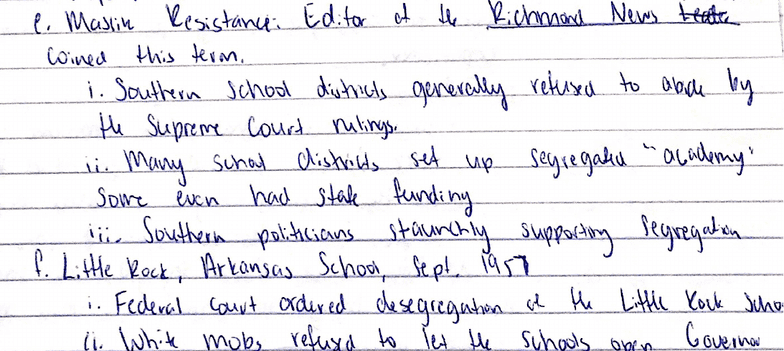 e. Massive Resistance: Editor at the Richmond News
coined this term.
i. Southern School districts generally refused to abide by
the Supreme Court rulings.
ii. Many school districts set up segregated "academy"
some even had state funding
iii. Southern politicians staunchly supporting segregation
f. Little Rock, Arkansas School, Sept. 1957
i. Federal court ordered desegregation at the Little Rock Scho
ii. White mobs refused to let the schools open Governo